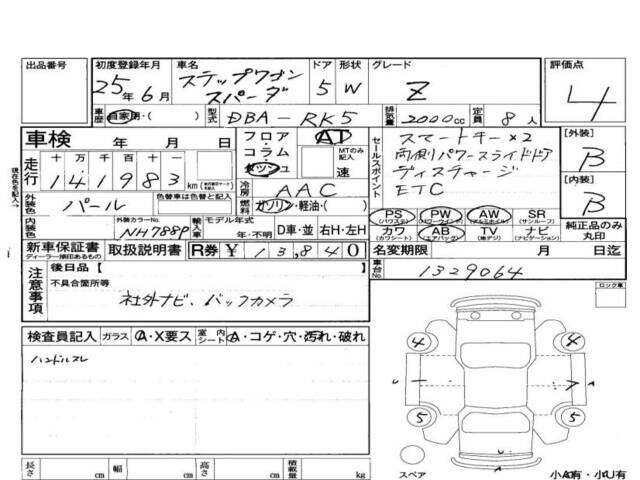 出品番号
初度登録年月
25年6月
車名
ステップワゴン
スパーダ
ドア
5
形状
W
グレード
Z
評価点
4
車歴
自家用・( )
型式
DBA-RK5
排気量
2000cc
定員
8人
車検 年 月 日
フロア
コラム
インパネ
AT
MTのみ記入
速
セールスポイント
スマートキー×2
両側パワースライドドア
ディスチャージ
ETC
[外装]
B
[内装]
B
現在札を記入→
走行
十万 万 千 百 十 一
141983km
冷房
AAC
燃料
ガソリン・軽油・( )
外装色
パール
色替車は色替と記入
内装色
外装カラーNo.
NH788P
輸入車
モデル年式
年・不明
D車・並 右H・左H
PS (パワステ)
PW (パワーウインド)
AW (アルミホイル)
SR (サンルーフ)
カワ (カワシート)
AB (エアバッグ)
TV (地デジ)
ナビ (ナビゲーション)
純正品のみ丸印
新車保証書
ディーラー捺印あるもの
取扱説明書
R券 ¥ 13,840
名変期限 月 日迄
車台No.
1329064
注意事項
後日品【 】
不具合箇所等
社外ナビ、バックカメラ
ロック車
検査員記入
ガラス
A・X要ス
室内シート
A・コゲ・穴・汚れ・破れ
ハンドルスレ
4
4
U
A
5
5
U
A
スペア
小A有・小U有
長さ cm
幅 cm
高さ cm
積載量 kg